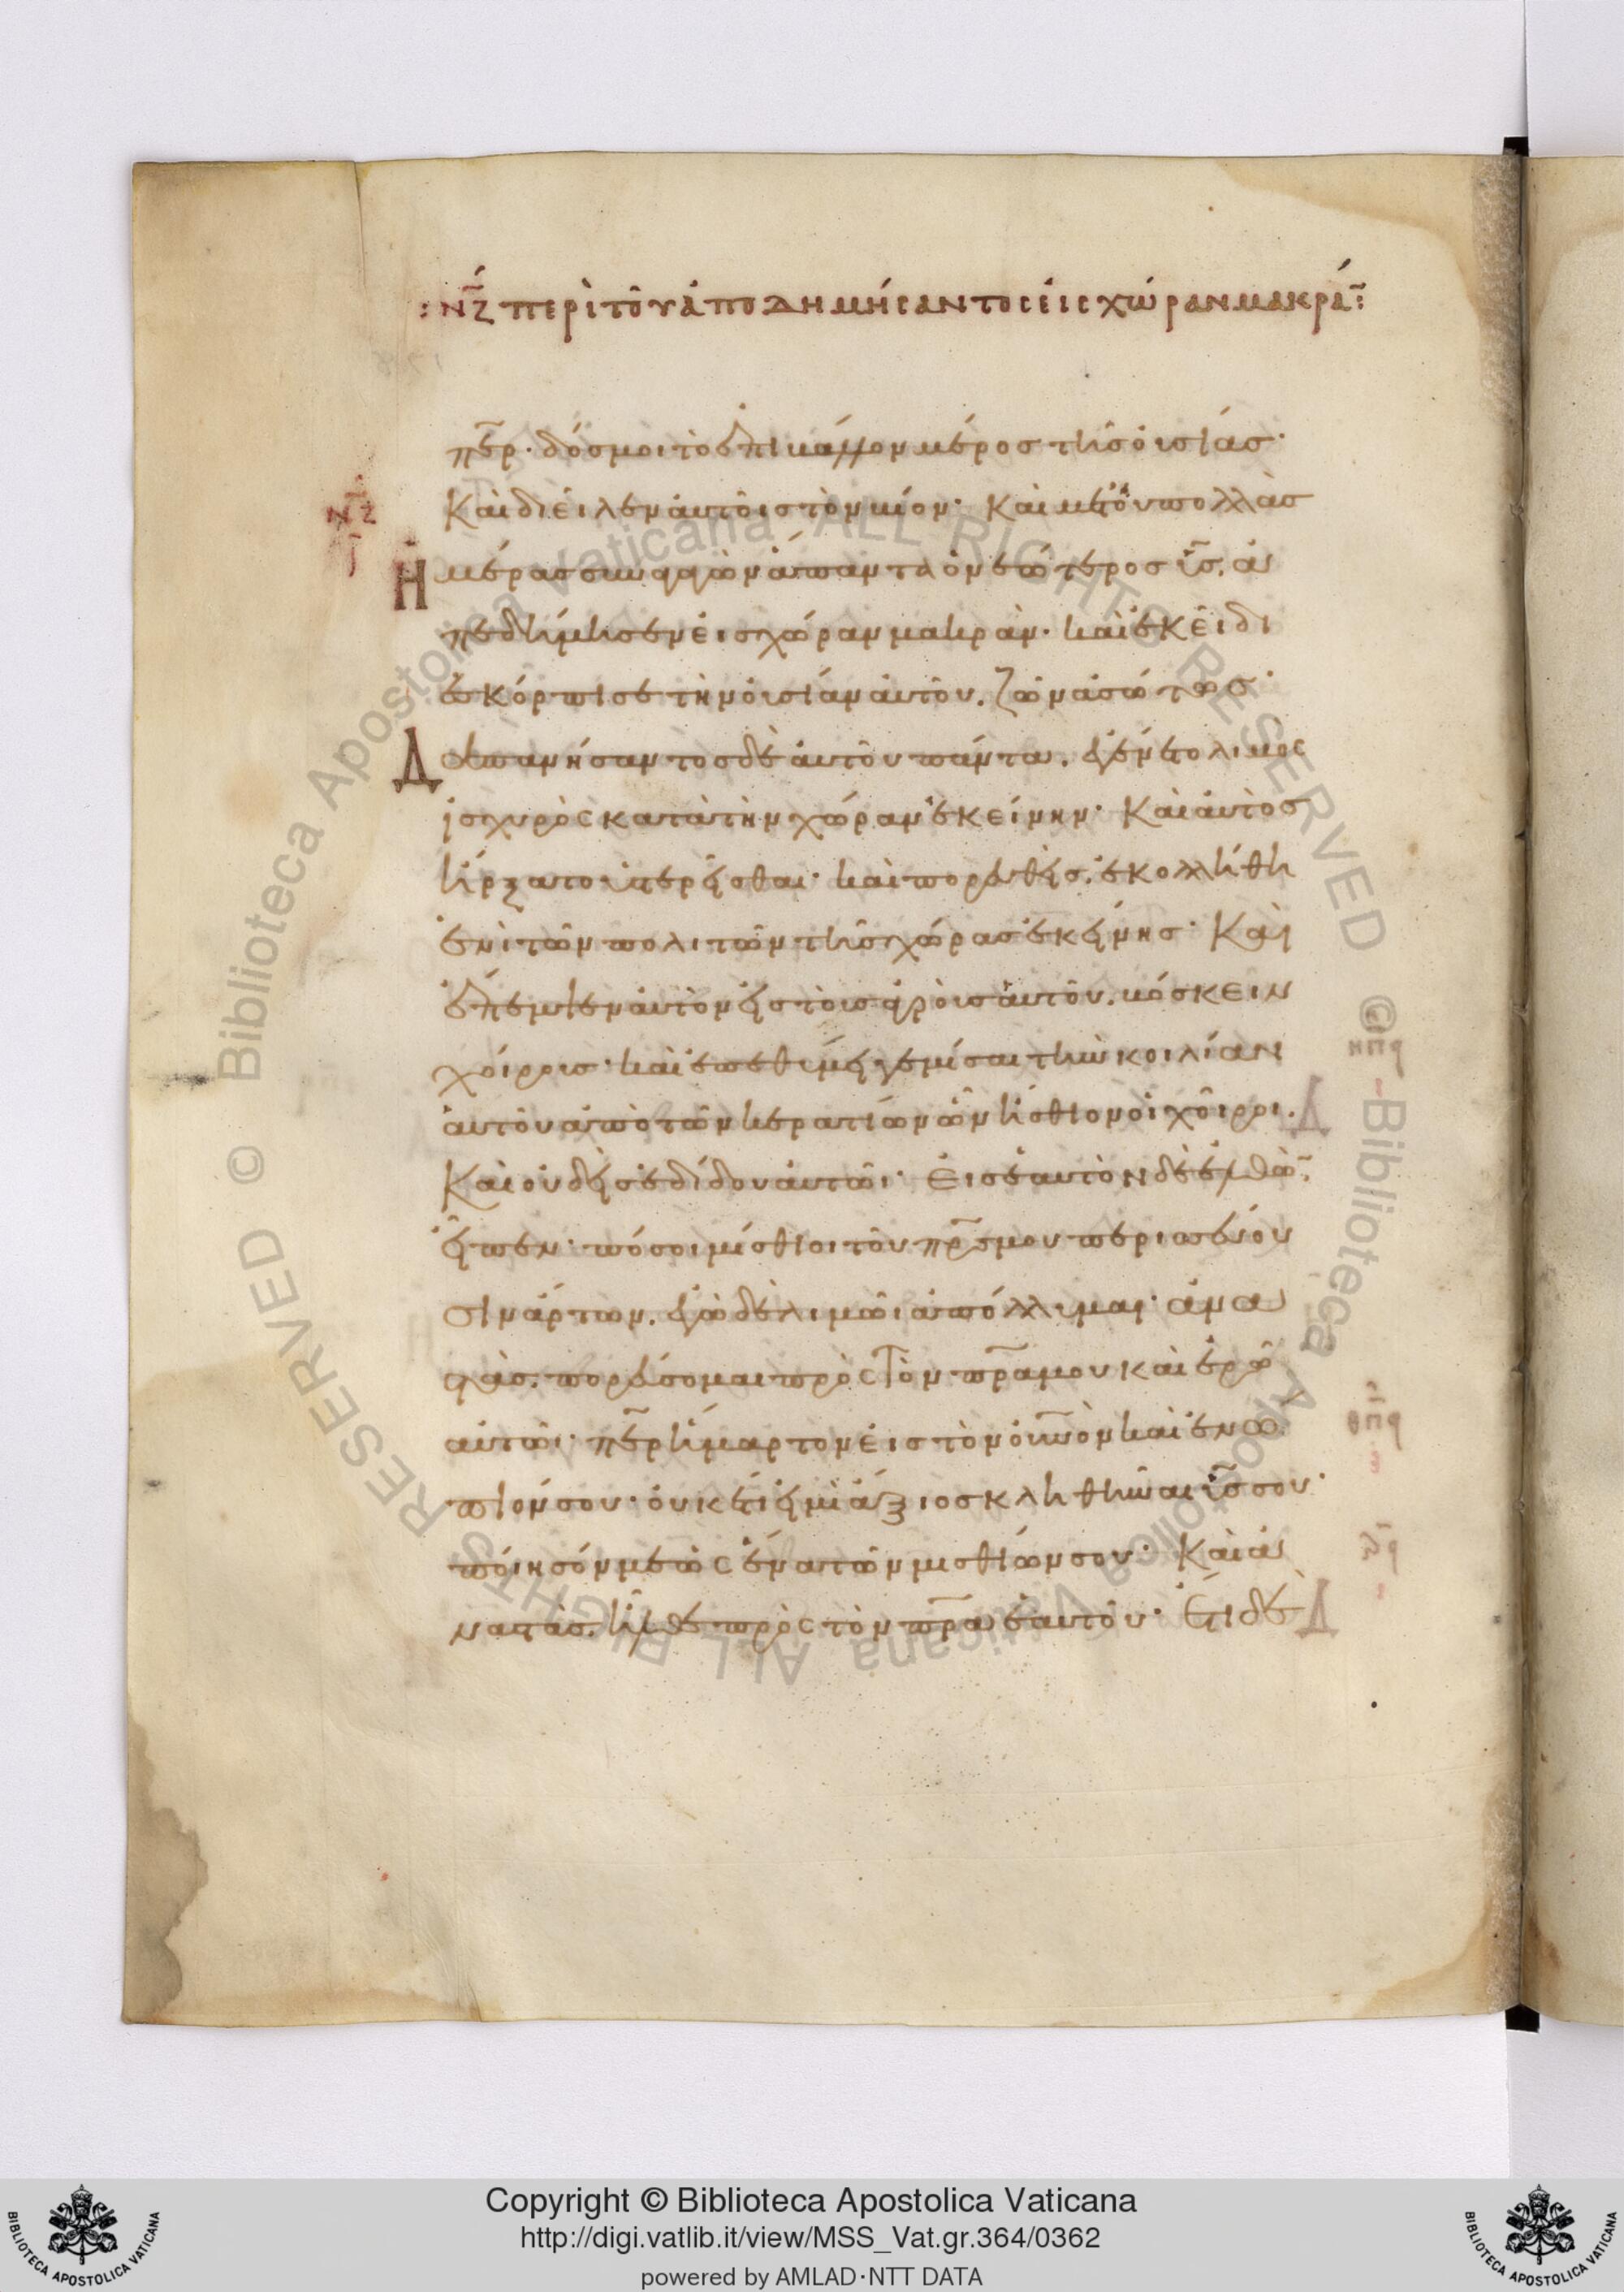 : ΝΖ ΠΕΡῚ ΤΟΥ͂ ἈΠΟΔΗΜΉCΑΝΤΟC ἘΙC ΧΏΡΑΝ ΜΑΚΡΆ͂:
π̅ε̅ρ̅· δόσ μοι τὸ ἐπιβάλλον μέρος τῆς οὐσίας·
Καὶ διεῖλεν αὐτοῖς τὸν βίον· Καὶ μετ' οὐ πολλὰσ
Ἡμέρασ συναγαγὼν ἅπαντα ὁ νεώτερος υἱ̅ς̅, ἀ
πεδήμησεν εἰσ χώραν μακρὰν· καὶ ἐκεῖ δι
εσκόρπισε τὴν οὐσίαν αὐτοῦ. ζῶν ἀσώτως·
Δαπανήσαντος δὲ αὐτοῦ πάντα. ἐγένετο λιμὸς
ἰσχυρὸς κατὰ τὴν χώραν ἐκείνην· Καὶ αὐτὸς
ἤρξατο ὑστερεῖσθαι· καὶ πορευθεὶς, ἐκολλήθη
ἑνὶ τῶν πολιτῶν τῆς χώρας ἐκείνης· Καὶ
ἔπεμψεν αὐτὸν εἰς τοὺς ἀγροὺς αὐτοῦ. βόσκειν
χοίρους· καὶ ἐπεθύμει γεμίσαι τὴν κοιλίαν
αὐτοῦ ἀπὸ τῶν κερατίων ὧν ἤσθιον οἱ χοῖροι.
Καὶ οὐδεὶς ἐδίδου αὐτῶι· Εἰς ἑαυτὸν δὲ ἐλθὼ̅.
εἶπεν· πόσοι μίσθιοι τοῦ π̅ρ̅ς̅ μου περισσεύου
σιν ἄρτων. ἐγὼ δὲ λιμῶι ἀπόλλυμαι· ἀνα
στὰς. πορεύσομαι πρὸς τὸν π̅ρ̅α̅ μου καὶ ἐρῶ
αὐτῶι· π̅ε̅ρ̅ ἥμαρτον εἰς τὸν ο̅υ̅ν̅ο̅ν̅ καὶ ἐνώ
πιόν σου· οὐκέτι εἰμὶ ἄξιος κληθῆναι υ̅ς̅ σου·
ποίησόν με ὡς ἕνα τῶν μισθίων σου· Καὶ ἀ
ναστὰς. ἦλθε πρὸς τὸν π̅ρ̅α̅ ἑαυτοῦ· Ἔτι δὲ
Copyright © Biblioteca Apostolica Vaticana
http://digi.vatlib.it/view/MSS_Vat.gr.364/0362
powered by AMLAD·NTT DATA
BIBLIOTECA APOSTOLICA VATICANA
BIBLIOTECA APOSTOLICA VATICANA
© Biblioteca Apostolica Vaticana ALL RIGHTS RESERVED © Biblioteca Apostolica Vaticana ALL RIGHTS RESERVED